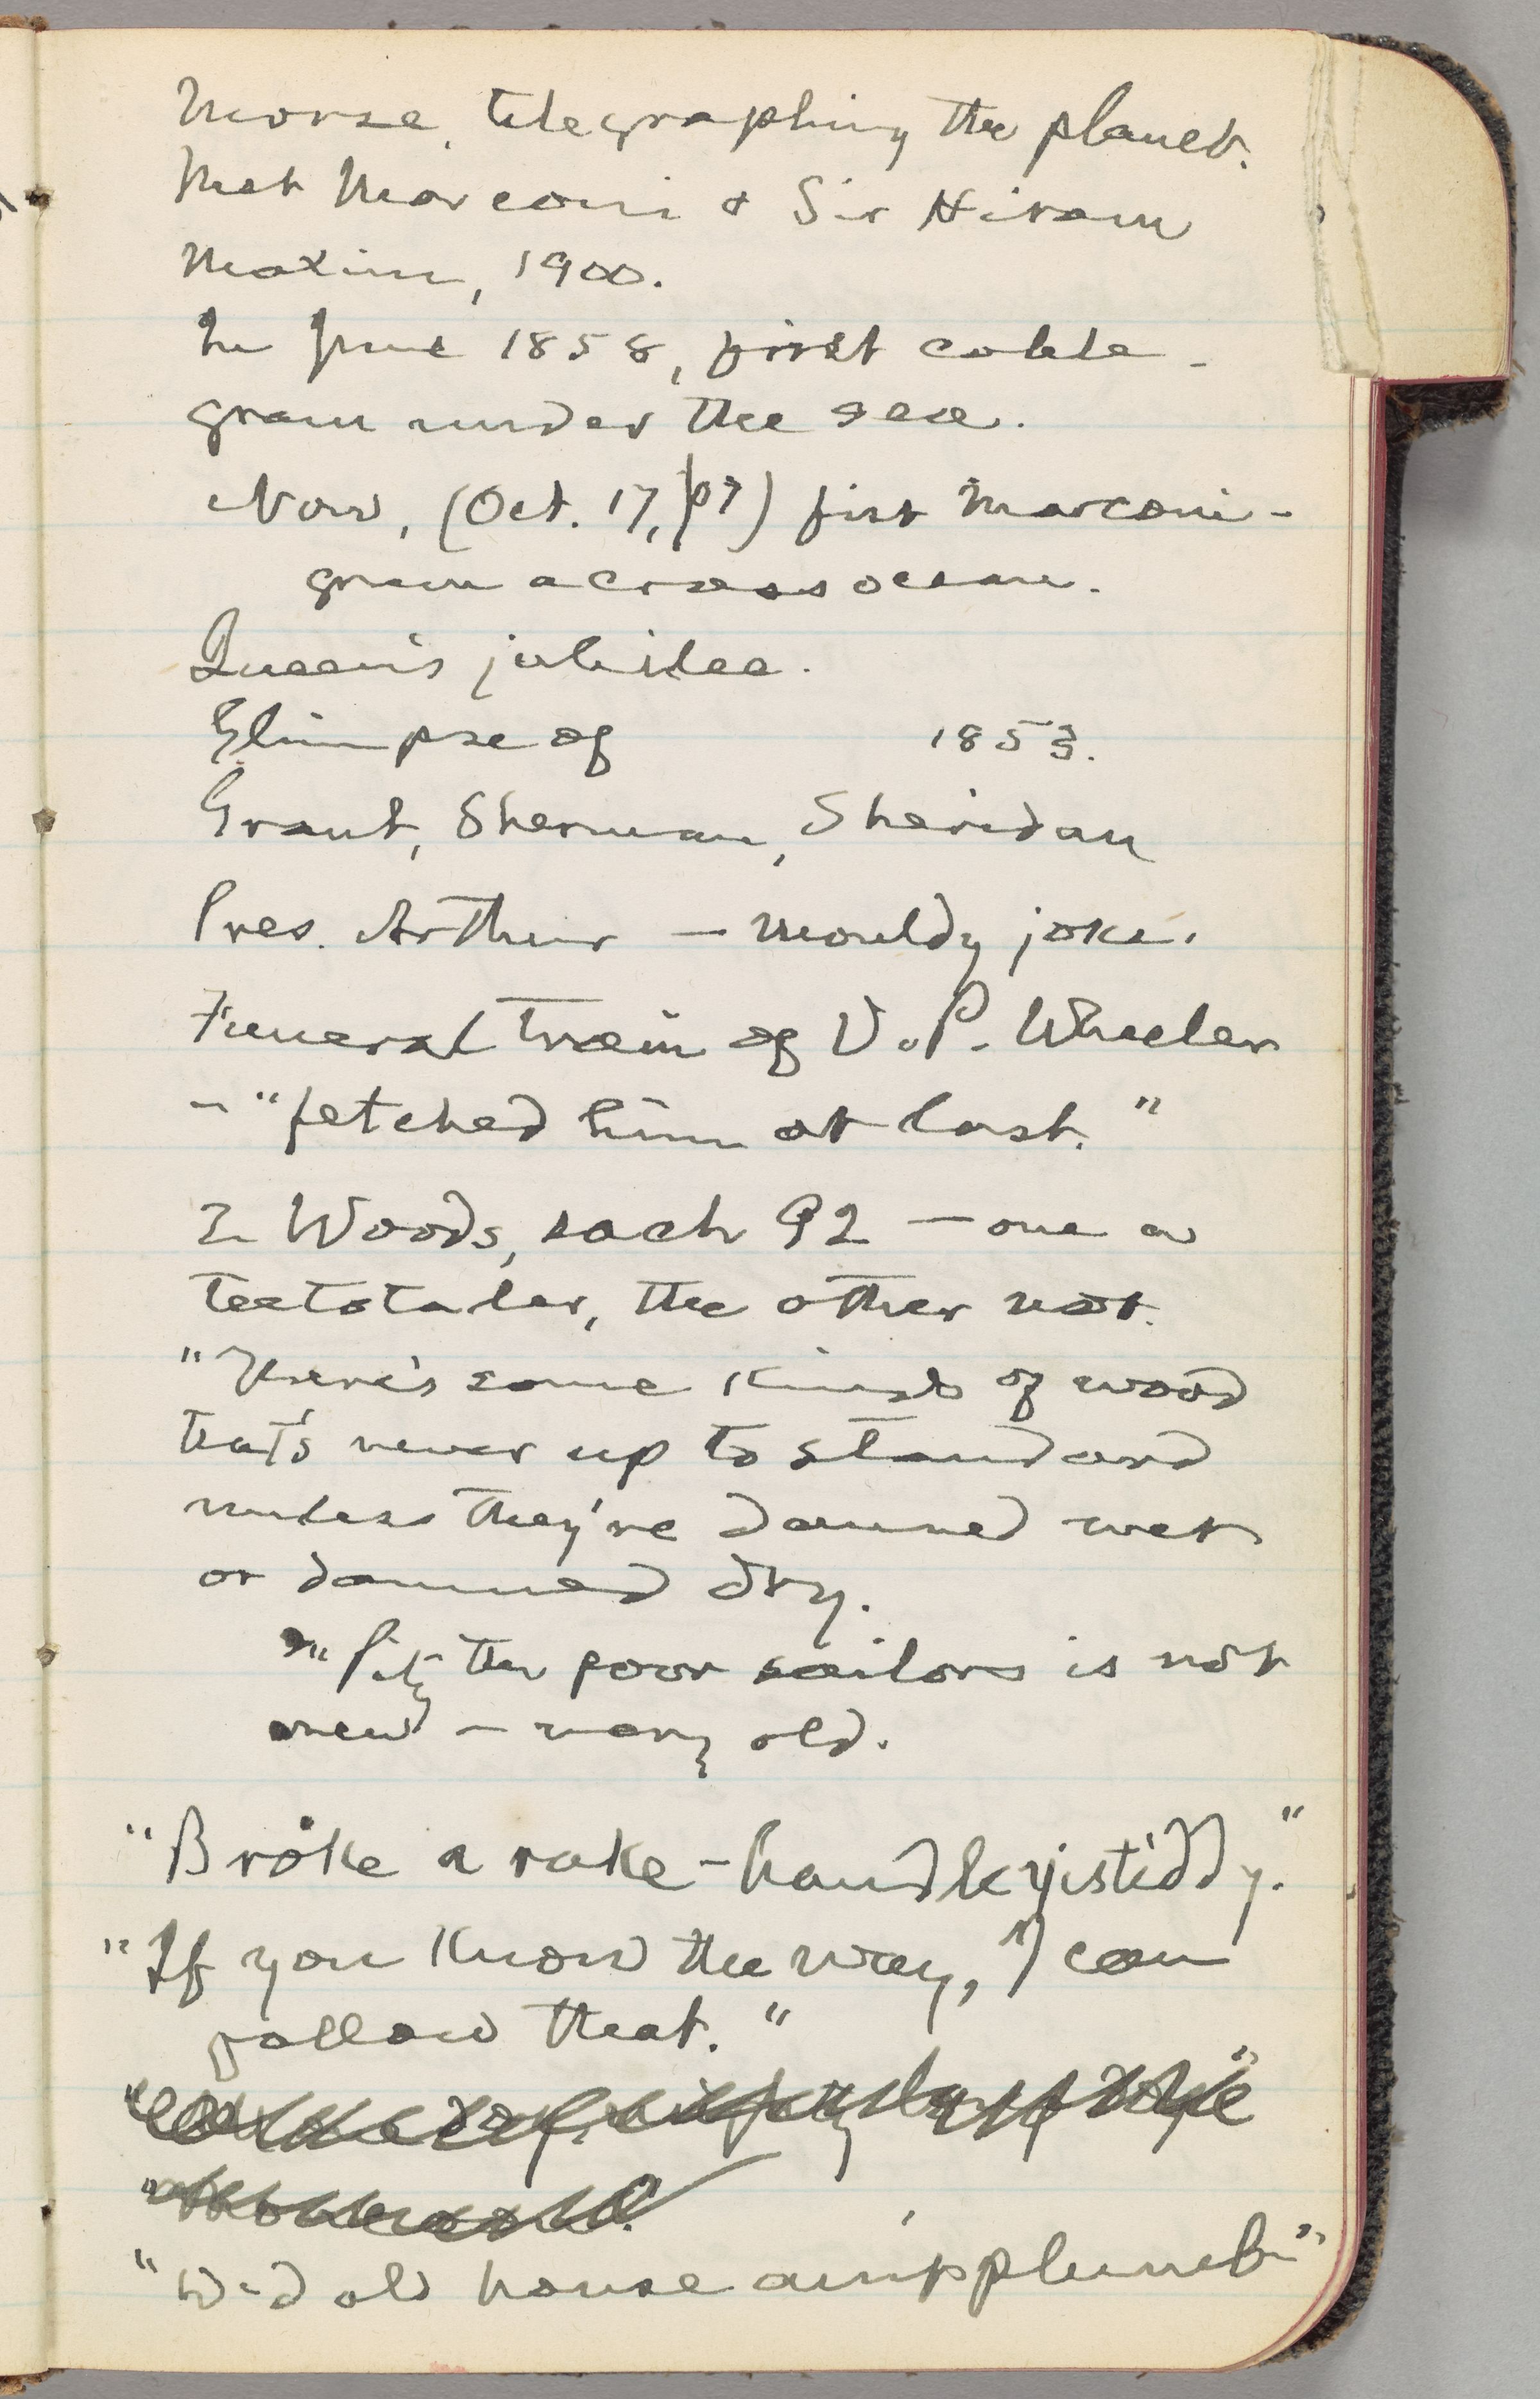 Morse, telegraphing the planet.
Met Marconi & Sir Hiram
Maxim, 1900.
In June 1858, first cable-
gram under the sea.
Now, (Oct. 17, '07) first Marconi-
gram across ocean.
Queen's jubilee.
Glimpse of 1853.
Grant, Sherman, Sheridan
Pres. Arthur — mouldy joke.
Funeral train of V.P. Wheeler
— "fetched him at last."
2 Woods, each 92 — one a
teetotaler, the other not.
"There's some kinds of wood
that's never up to standard
unless they're damned wet
or damned dry.
"Pity the poor sailors is not
new — very old.
"Broke a rake-handle yistiddy."
"If you know the way, I can
follow that."
old house